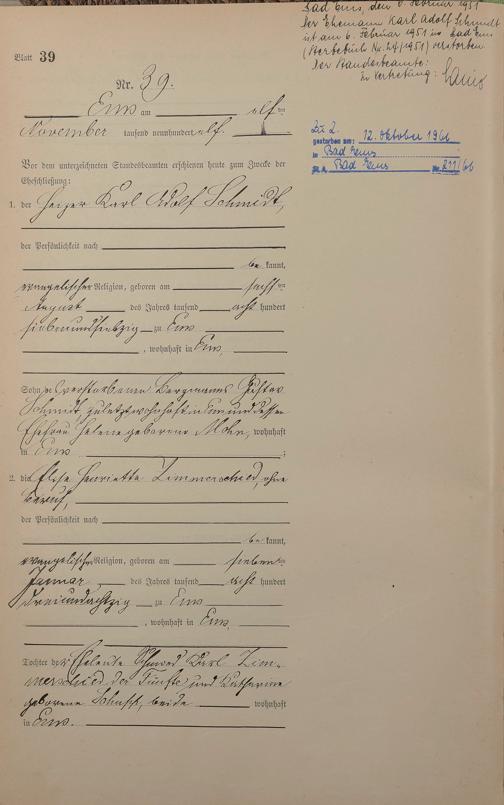 Bad Ems, den 8. Februar 1951
Der Ehemann Karl Adolf Schmidt
ist am 6. Februar 1951 in Bad Ems
(Sterbebuch No. 24/1951) verstorben.
Der Standesbeamte:
In Vertretung:
Blatt 39
Nr. 39.
Ems am elften
November tausend neunhundert elf.
Zu 2.
gestorben am: 12. Oktober 1966
in Bad Ems
Bad Ems Nr. 211/66
Vor dem unterzeichneten Standesbeamten erschienen heute zum Zwecke der
Eheschließung:
1. der Heizer Karl Adolf Schmidt,
der Persönlichkeit nach
be kannt,
evangelischer Religion, geboren am sechsten
August des Jahres tausend acht hundert
siebenundsiebzig zu Ems
, wohnhaft in Ems,
Sohn des verstorbenen Bergmanns Gustav
Schmidt, zuletzt wohnhaft in Ems und dessen
Ehefrau Helene geborene Mohn, wohnhaft
in Ems ;
2. die Elise Henriette Zimmerschied, ohne
Beruf,
der Persönlichkeit nach
be kannt,
evangelischer Religion, geboren am siebenten
Januar des Jahres tausend acht hundert
dreiundachtzig zu Ems
, wohnhaft in Ems,
Tochter der Eheleute Schmied Karl Zim-
merschied der Fünfte und Katharine
geborene Schupp, beide wohnhaft
in Ems.